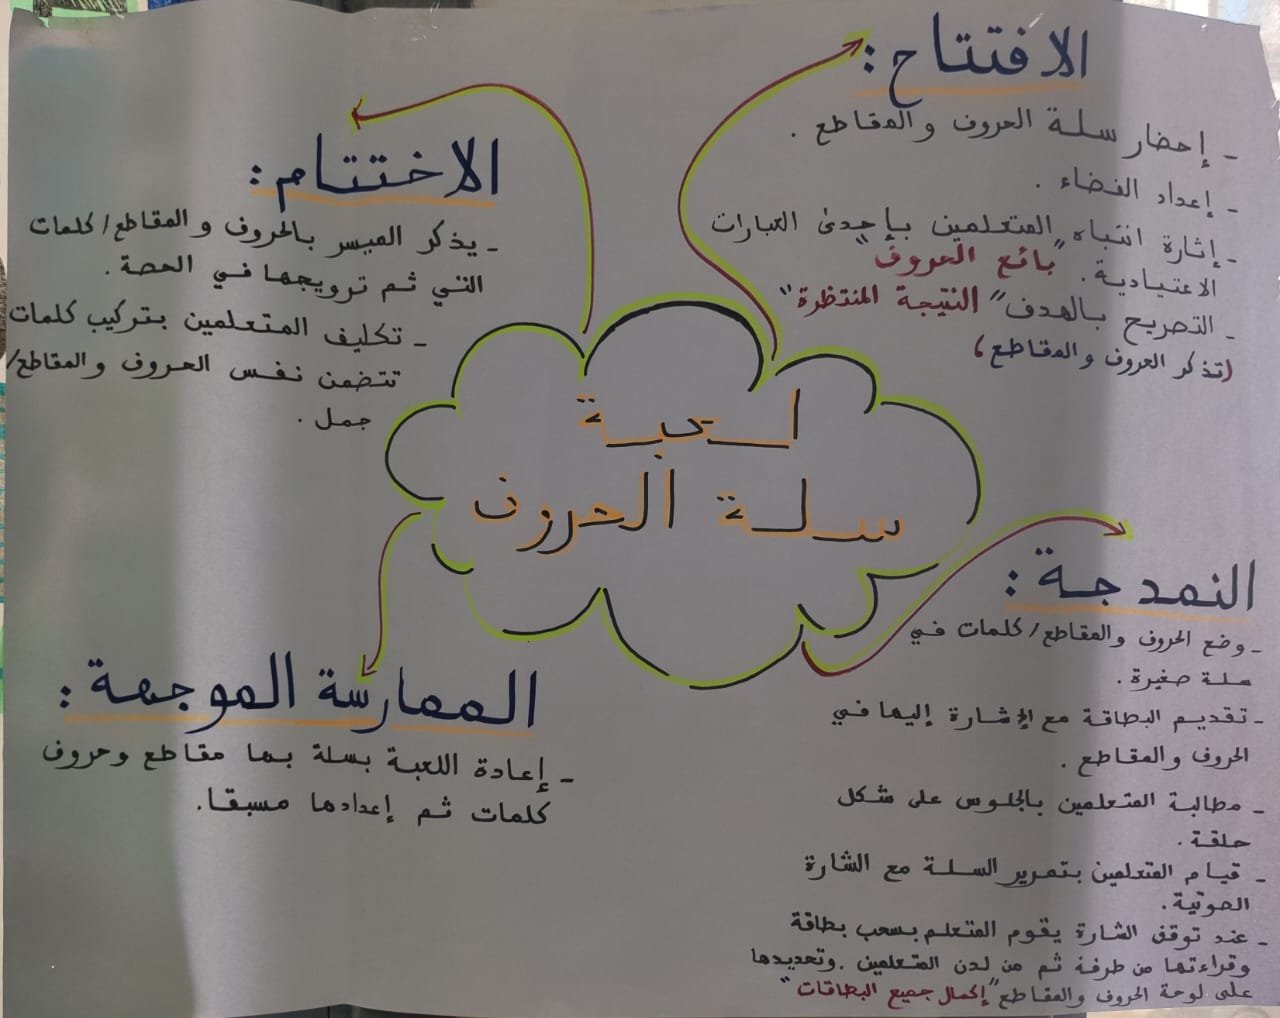 لعبة
سلة الحروف
الافتتاح :
- إحضار سلة الحروف والمقاطع .
- إعداد الفضاء .
- إثارة انتباه المتعلمين بإحدى العبارات
الاعتيادية. "بائع الحروف"
- التصريح بالهدف "النتيجة المنتظرة"
(تذكر الحروف والمقاطع)
النمدجة :
- وضع الحروف والمقاطع/كلمات في
سلة صغيرة .
- تقديم البطاقة مع الإشارة إليها في
الحروف والمقاطع .
- مطالبة المتعلمين بالجلوس على شكل
حلقة .
- قيام المتعلمين بتمرير السلة مع الشارة
الصوتية .
- عند توقف الشارة يقوم المتعلم بسحب بطاقة
وقراءتها من طرفه ثم من لدن المتعلمين . وتحديدها
على لوحة الحروف والمقاطع "إكمال جميع البطاقات"
الممارسة الموجهة :
- إعادة اللعبة بسلة بها مقاطع وحروف
كلمات ثم إعدادها مسبقا .
الاختتام :
- يذكر الميسر بالحروف والمقاطع/كلمات
التي ثم ترويجها في الحصة .
- تكليف المتعلمين بتركيب كلمات
تتضمن نفس الحروف والمقاطع/
جمل .